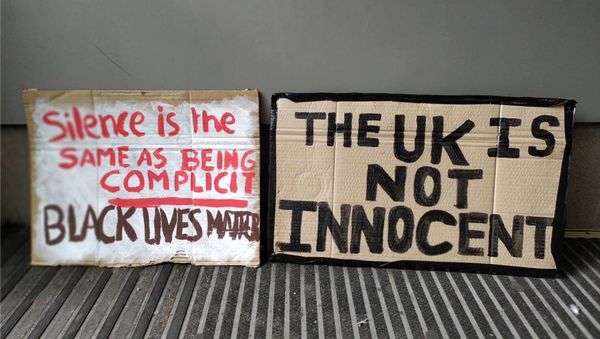 Silence is the
SAME AS BEING
COMPLICIT
BLACK LIVES MATTER
THE UK IS
NOT
INNOCENT